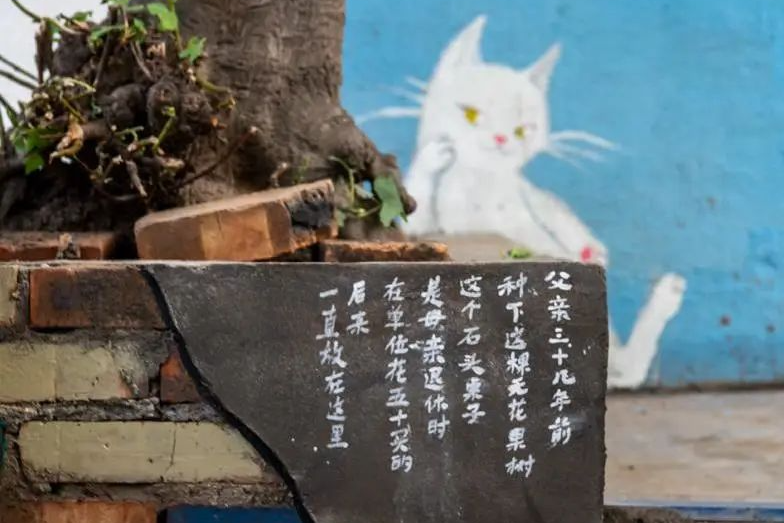 父亲三十几年前
种下这棵无花果树
这个石头桌子
是母亲退休时
在单位花五十买的
后来
一直放在这里